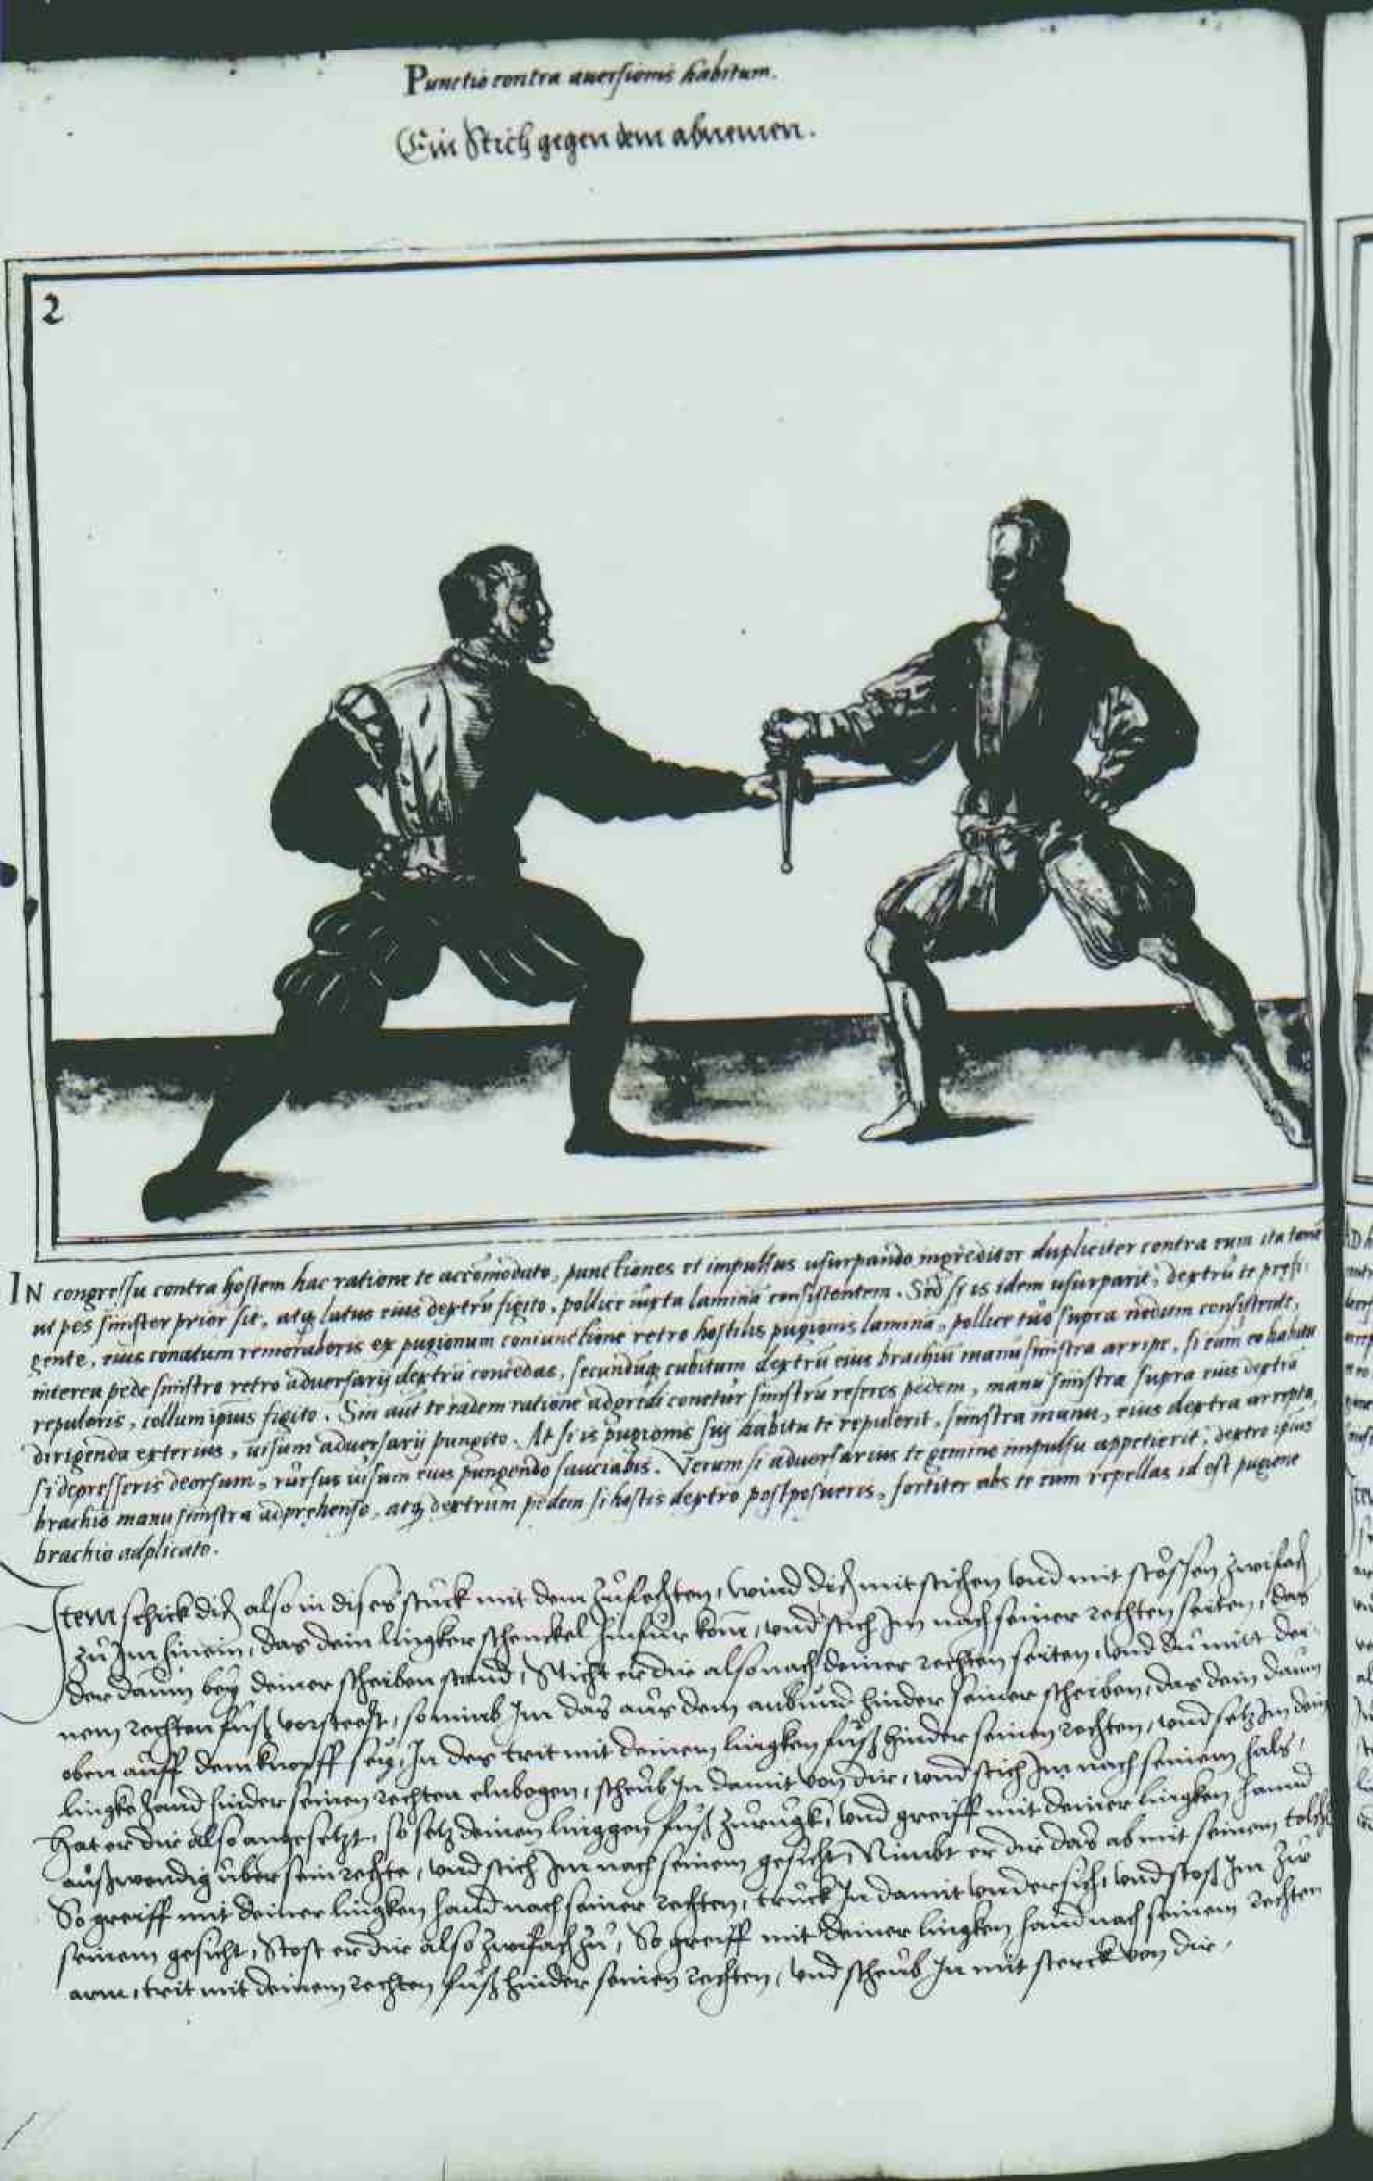 Punctio contra auersionis habitum.
Ein Stich gegen dem abnemen.
2
IN congressu contra hostem hac ratione te accōmodato, punctiones et impulsus usurpando ingreditor dupliciter contra eum ita tamē
ut pes sinister prior sit, atq latus eius dextrū figito, pollice iuxta laminā consistentem. Sed si is idem usurparit, dextrū te prefi-
gente, eius conatum remoraberis ex pugionum coniunctione retro hostilis pugionis lamina, pollice tuo supra nodum consistente,
interea pede sinistro retro aduersarij dextrū concedas, secundūq cubitum dextrū eius brachiū manu sinistra arripe, si eum eo habitu
repuleris, collum ipsius figito. Sin aūt te eadem ratione adgredi conetur sinistrū referes pedem, manu sinistra supra eius dextrā
dirigenda exterius, uisum aduersarij pungito. At si is pugionis sui habitu te repulerit, sinistra manu, eius dextra arrepta,
si depresseris deorsum, rursus uisum eius pungendo sauciabis. Verum si aduersarius te gemino impulsu appetierit, dextro ipsius
brachio manu sinistra adprehenso, atq dextrum pedem si hostis dextro postposueris, fortiter abs te eum repellas id est pugione
brachio adplicato.
Item schick dich also in dises stuck mit dem zufechten, wind dich mit stichen vnd mit stössen zwifach
zu Im hinein, das dein lingker schenckel Hinfür kom̄, vnd stich Im nach seiner rechten seiten, das
der daum bey deiner scheiben stand, Sticht er dir also nach deiner rechten seiten, vnd du mit dei-
nem rechten fuß vorsteest, so nimb Im das aus dem anbund hinder seiner scheiben, das dein daum
oben auff dem knopff sey, In des trit mit deinem lingken fuß hinder seinen rechten, vnd setz Im dein
lingke hand hinder seinen rechten elnbogen, scheub In damit von dir, vnd stich Im nach seinem hals,
Hat er dir also angesetzt, so setz deinen linggen fuß zurugk, vnd greiff mit deiner lingken hannd
außwendig über sein rechte, vnd stich Im nach seinem gesicht, Nimbt er dir das ab mit seinem tolchen
So greiff mit deiner lingken hand nach seiner rechten, truck In damit vndersich, vnd stoß Im zu
seinem gesicht, Stost er dir also zwifach zu, So greiff mit deiner lingken hand nach seinem rechten
arm, trit mit deinem rechten fuß hinder seinen rechten, vnd scheub In mit sterck von dir.